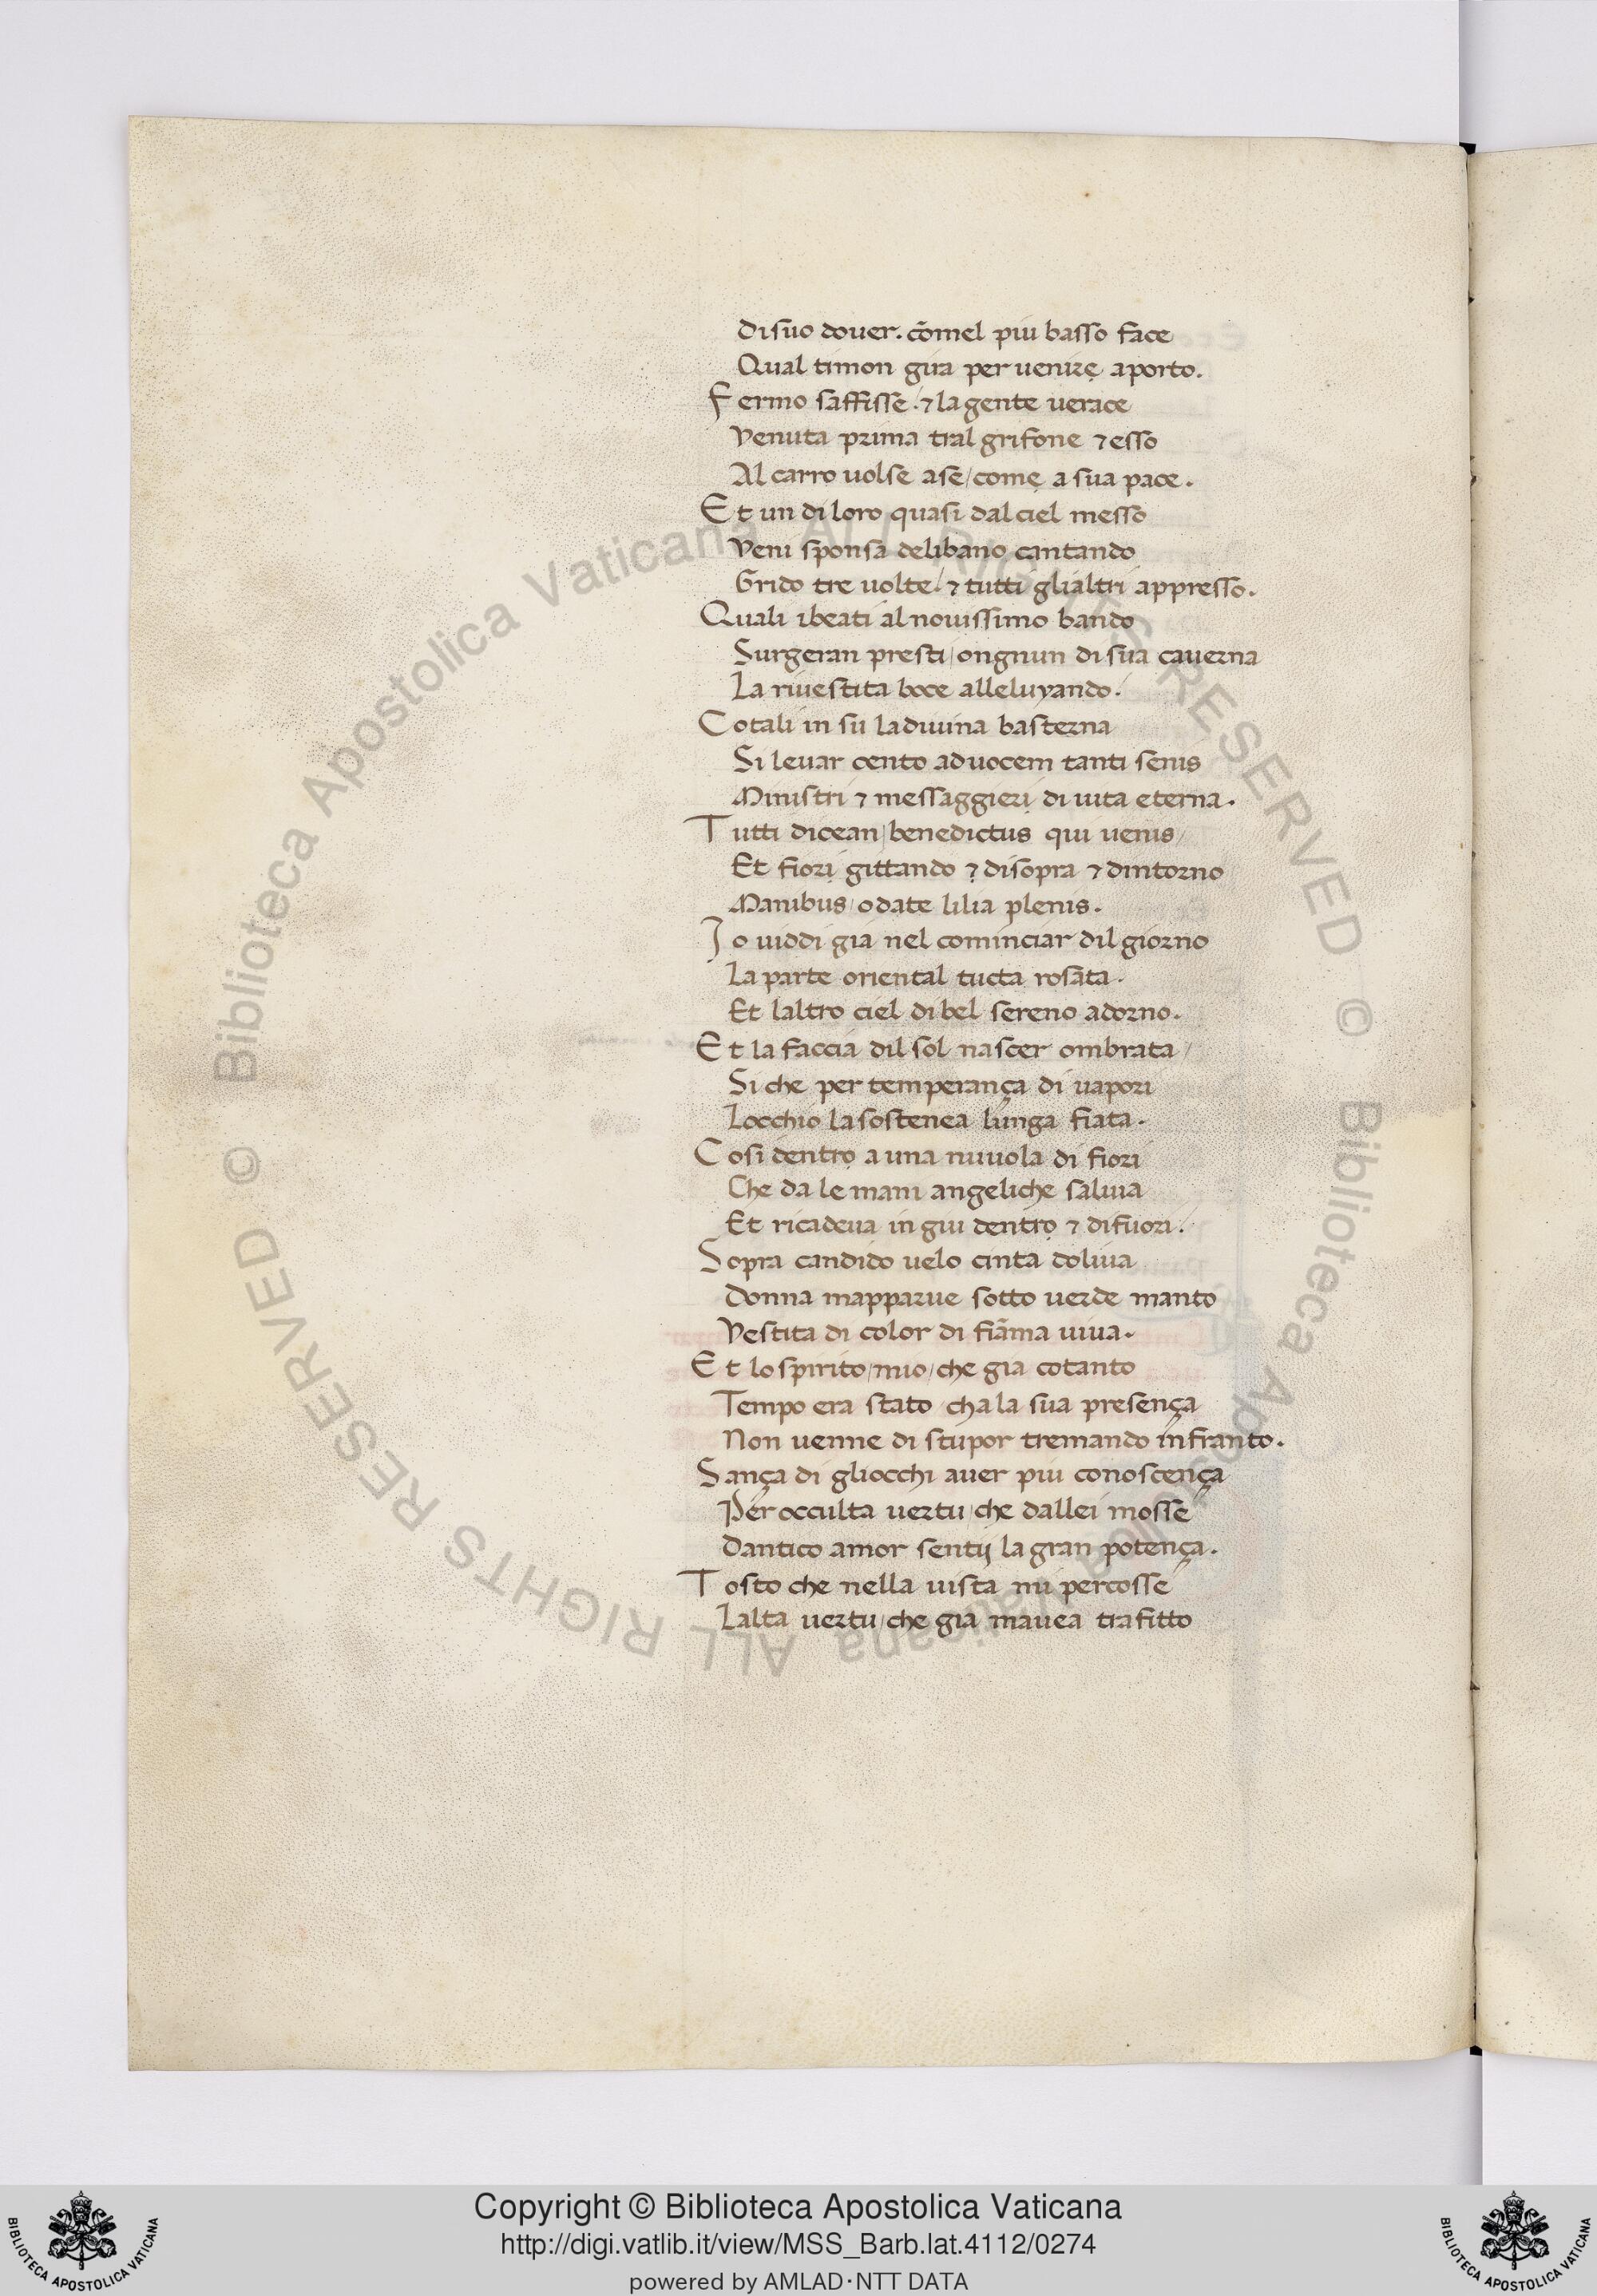 Di suo douer. cōmel piu basso face
Qual timon gira per uenirẹ aporto.
Fermo saffisse. ⁊ la gente uerace
Venuta prima tral grifone ⁊ esso
Al carro uolse ase / comẹ a sua pace.
Et un di loro quasi dal ciel messo
Veni sponsa de libano cantando
Grido tre uolte / ⁊ tutti glialtri appresso.
Quali ibeati al nouissimo bando
Surgeran presti / ongnun di sua cauerna
La riuestita boce alleluyando.
Cotali in su la diuina basterna
Si leuar cento ad uocem tanti senis
Ministri ⁊ messaggieri di uita eterna.
Tutti dicean / benedictus qui uenis /
Et fiori gittando ⁊ disopra ⁊ dintorno
Manibus / o date lilia plenis.
Io uiddi gia nel cominciar dil giorno
La parte oriental tucta rosata.
Et laltro ciel di bel sereno adorno.
Et la faccia dil sol nascer ombrata /
Si che per temperança di uapori
Locchio la sostenea lunga fiata.
Cosi dentrọ a una nuuola di fiori
Che da le mani angeliche saliuia
Et ricadeua in giu dentrọ ⁊ difuori.
Sopra candido uelo cinta doliua
Donna mapparue sotto uerde manto
Vestita di color di fiāma uiua.
Et lo spirito / mio / che gia cotanto
Tempo era stato / cha la sua presença
Non uenne di stupor tremando infranto.
Sança di gliocchi auer piu conoscença
Per occulta uertu / che dallei mosse
Dantico amor sentij la gran potença.
Tosto che nella uista mi percosse
Lalta uertu / che gia mauea trafitto
© Biblioteca Apostolica Vaticana ALL RIGHTS RESERVED © Biblioteca Apostolica Vaticana ALL RIGHTS RESERVED
Copyright © Biblioteca Apostolica Vaticana
http://digi.vatlib.it/view/MSS_Barb.lat.4112/0274
powered by AMLAD·NTT DATA
BIBLIOTECA APOSTOLICA VATICANA
BIBLIOTECA APOSTOLICA VATICANA